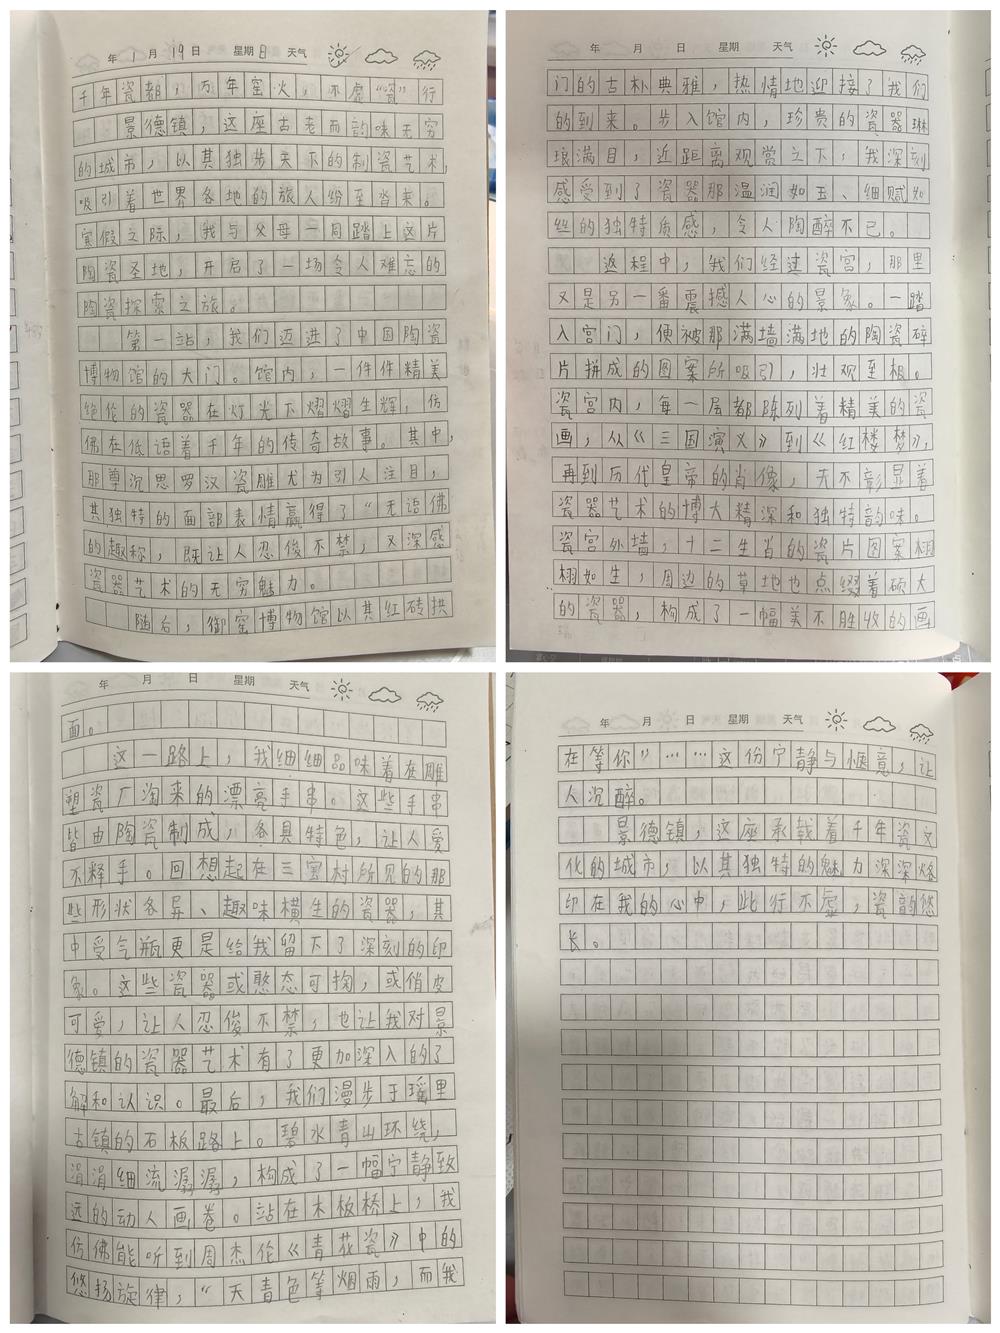 年 1 月 19 日 星期 日 天气
千年瓷都，万年窑火，不虚“瓷”行
景德镇，这座古老而韵味无穷
的城市，以其独步天下的制瓷艺术，
吸引着世界各地的旅人纷至沓来。
寒假之际，我与父母一同踏上这片
陶瓷圣地，开启了一场令人难忘的
陶瓷探索之旅。
第一站，我们迈进了中国陶瓷
博物馆的大门。馆内，一件件精美
绝伦的瓷器在灯光下熠熠生辉，仿
佛在低语着千年的传奇故事。其中，
那尊沉思罗汉瓷雕尤为引人注目，
其独特的面部表情赢得了“无语佛
的趣称，既让人忍俊不禁，又深感
瓷器艺术的无穷魅力。
随后，御窑博物馆以其红砖拱
年 月 日 星期 天气
门的古朴典雅，热情地迎接了我们
的到来。步入馆内，珍贵的瓷器琳
琅满目，近距离观赏之下，我深刻
感受到了瓷器那温润如玉、细腻如
丝的独特质感，令人陶醉不已。
返程中，我们经过瓷宫，那里
又是另一番震撼人心的景象。一踏
入宫门，便被那满墙满地的陶瓷碎
片拼成的图案所吸引，壮观至极。
瓷宫内，每一层都陈列着精美的瓷
画，从《三国演义》到《红楼梦》，
再到历代皇帝的肖像，无不彰显着
瓷器艺术的博大精深和独特韵味。
瓷宫外墙，十二生肖的瓷片图案栩
栩如生，周边的草地也点缀着硕大
的瓷器，构成了一幅美不胜收的画
年 月 日 星期 天气
面。
这一路上，我细细品味着在雕
塑瓷厂淘来的漂亮手串。这些手串
皆由陶瓷制成，各具特色，让人爱
不释手。回想起在三宝村所见的那
些形状各异、趣味横生的瓷器，其
中受气瓶更是给我留下了深刻的印
象。这些瓷器或憨态可掬，或俏皮
可爱，让人忍俊不禁，也让我对景
德镇的瓷器艺术有了更加深入的了
解和认识。最后，我们漫步于瑶里
古镇的石板路上。碧水青山环绕，
涓涓细流潺潺，构成了一幅宁静致
远的动人画卷。站在木板桥上，我
仿佛能听到周杰伦《青花瓷》中的
悠扬旋律，“天青色等烟雨，而我
年 月 日 星期 天气
在等你”……这份宁静与惬意，让
人沉醉。
景德镇，这座承载着千年瓷文
化的城市，以其独特的魅力深深烙
印在我的心中，此行不虚，瓷韵悠
长。